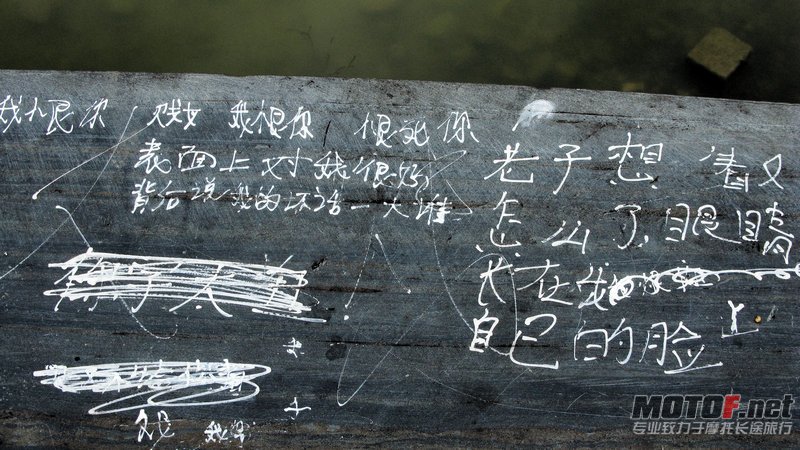 贱女 我恨你 恨死你
表面上对我很好
背后说我的坏话一大堆
老子想 看又
怎么了,眼睛
长在我
自己的脸上
MOTOF.net
专业致力于摩托长途旅行